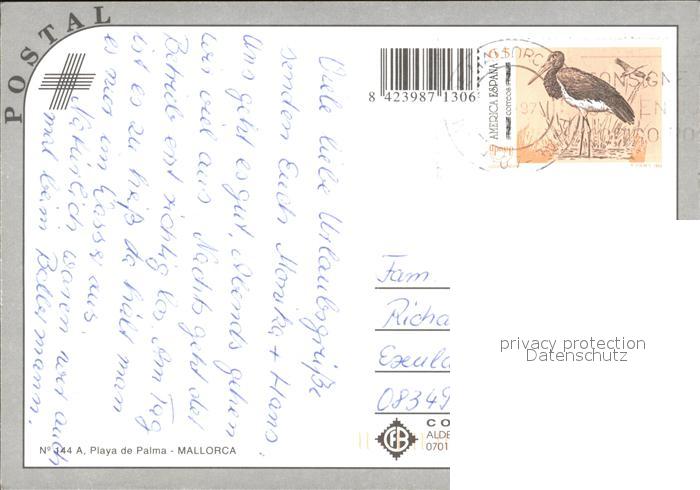 POSTAL
Viele liebe Urlaubsgrüße
senden Euch Monika + Hans.
Uns geht es gut, Abends gehen
wir viel aus. Nachts geht der
Betrieb erst richtig los. Am Tag
ist es zu heiß da hält man
es nur im Wasser aus.
Natürlich waren wir auch
mal beim Ballermann.
Nº 144 A, Playa de Palma - MALLORCA
8 423987 1306
AMERICA ESPAÑA
correos
65
97
Fam.
Richa
Exula
08349
CO
ALDE
0701
privacy protection
Datenschutz